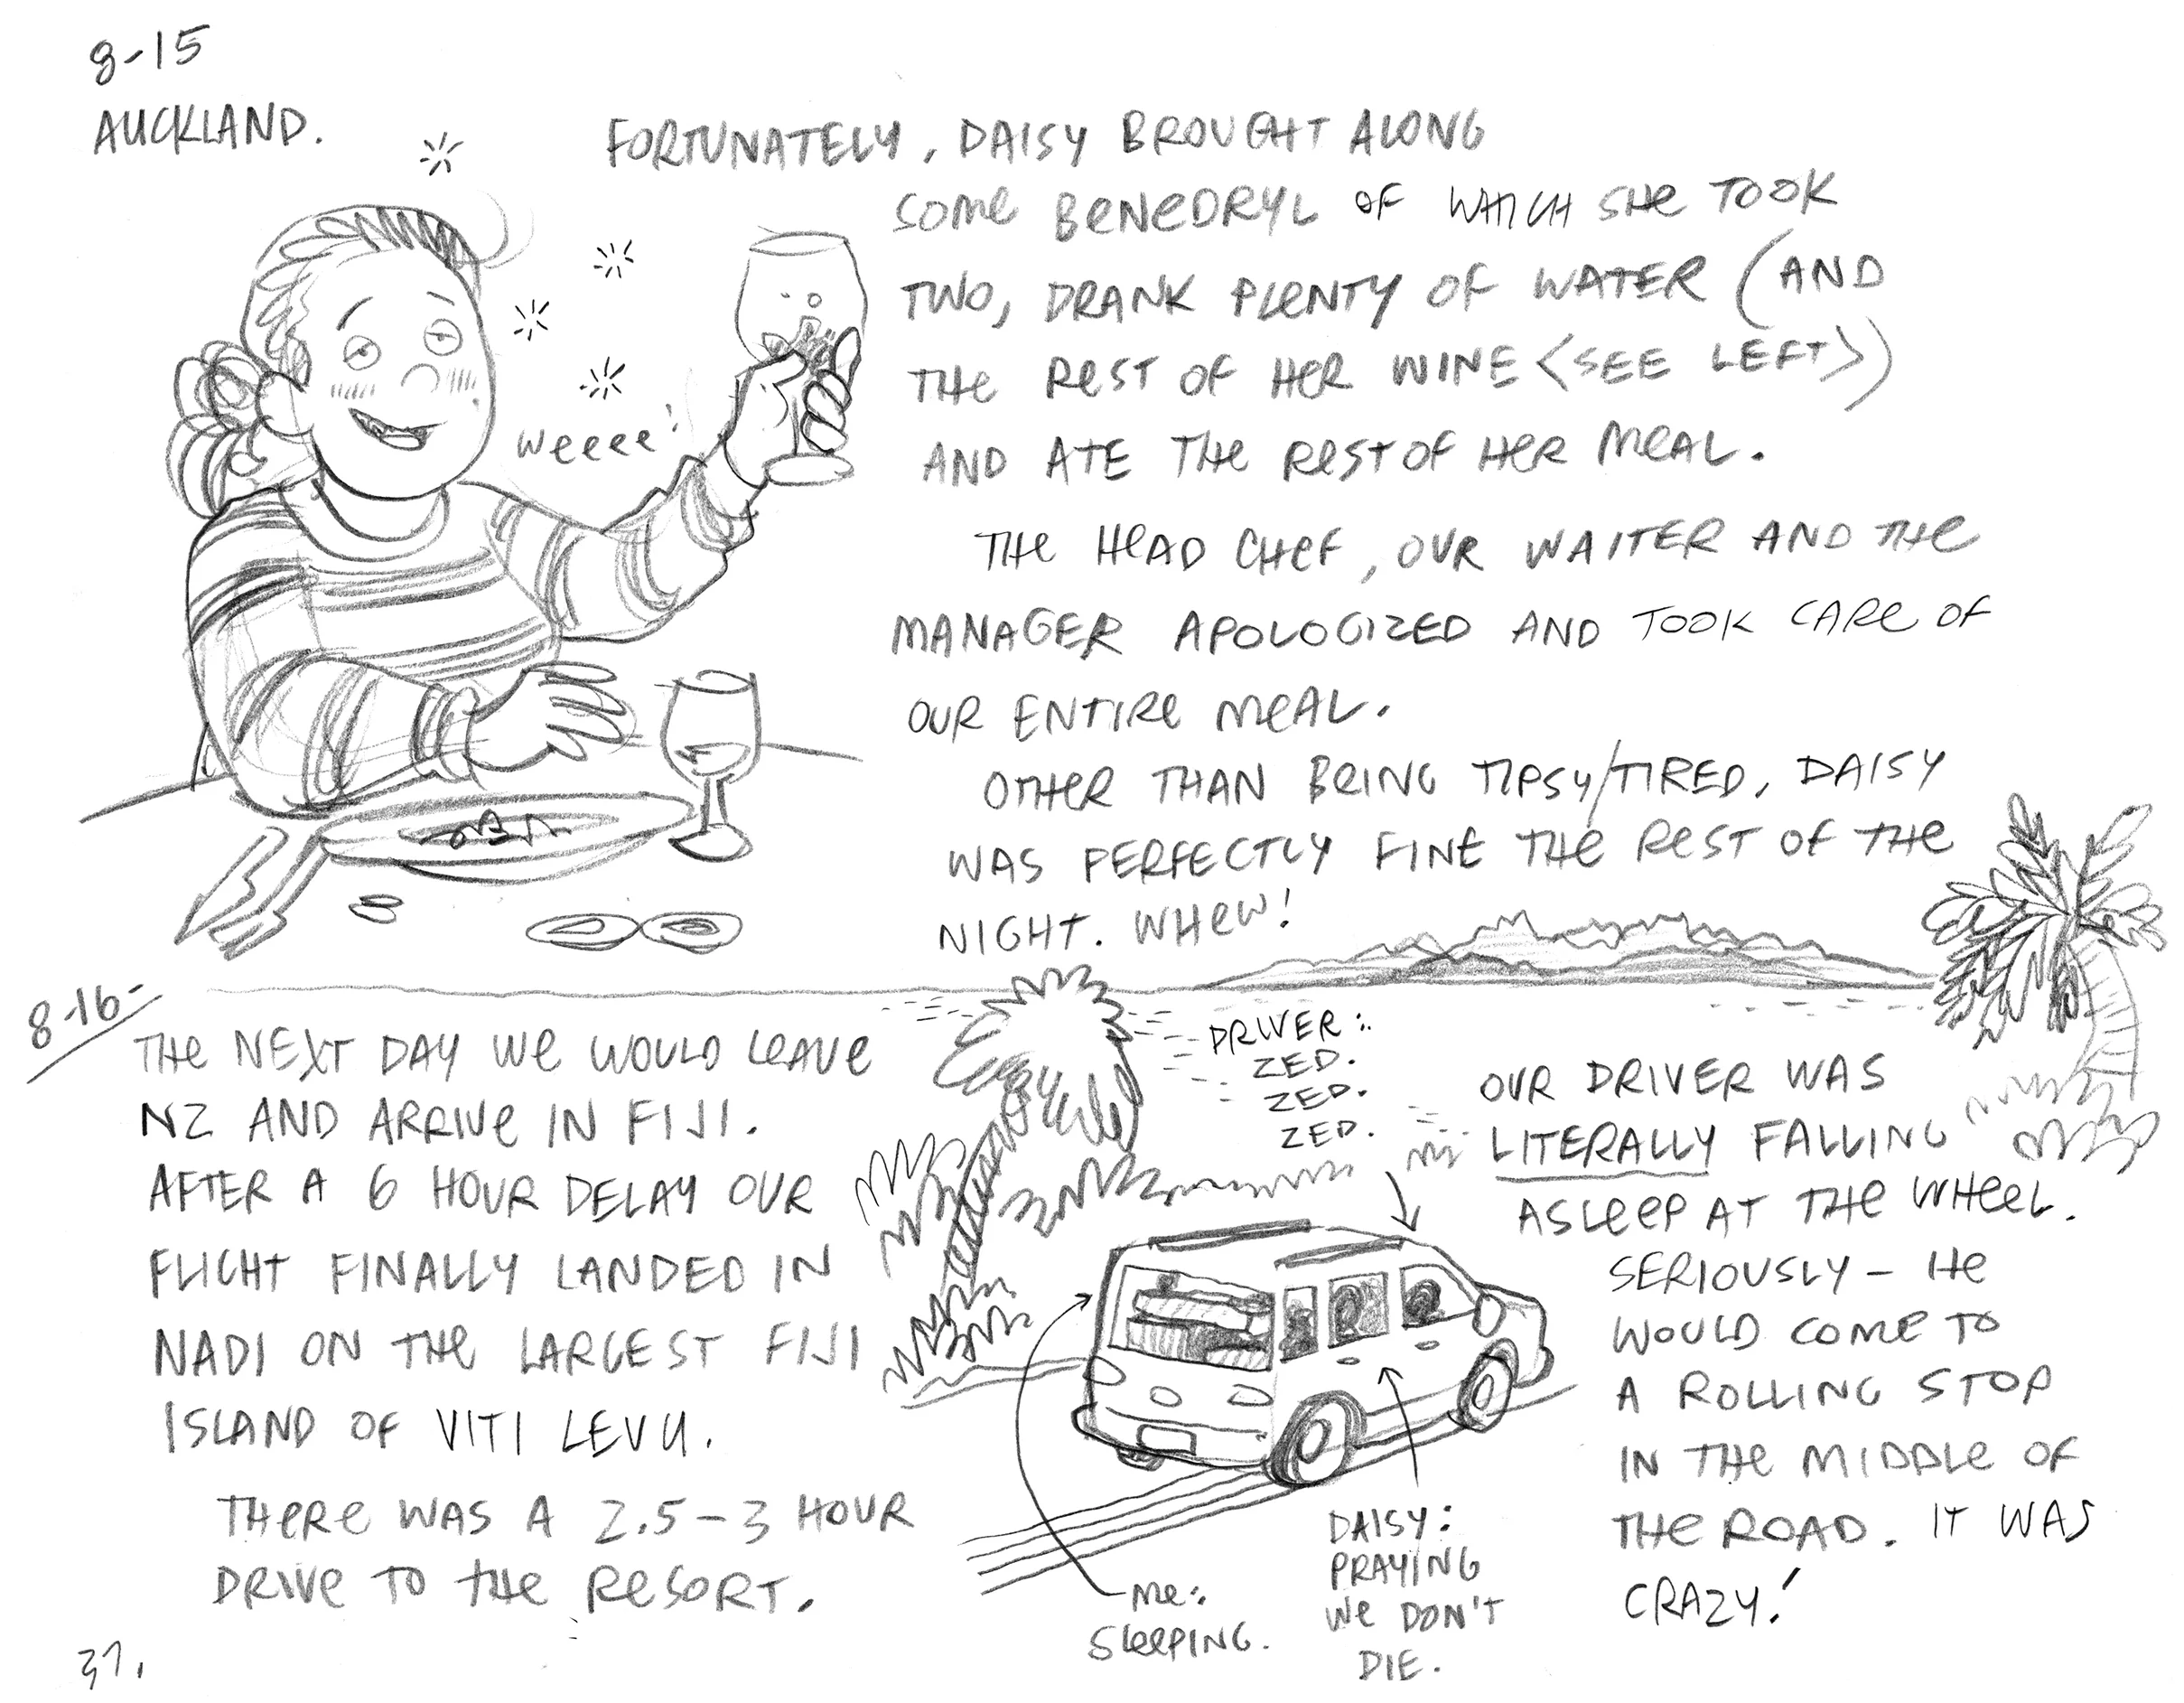 8-15
AUCKLAND.
FORTUNATELY, DAISY BROUGHT ALONG
SOME BENEDRYL OF WHICH SHE TOOK
TWO, DRANK PLENTY OF WATER (AND
THE REST OF HER WINE <SEE LEFT>)
AND ATE THE REST OF HER MEAL.
weeee!
THE HEAD CHEF, OUR WAITER AND THE
MANAGER APOLOGIZED AND TOOK CARE OF
OUR ENTIRE MEAL.
OTHER THAN BEING TIPSY/TIRED, DAISY
WAS PERFECTLY FINE THE REST OF THE
NIGHT. WHEW!
8-16-
THE NEXT DAY WE WOULD LEAVE
NZ AND ARRIVE IN FIJI.
AFTER A 6 HOUR DELAY OUR
FLIGHT FINALLY LANDED IN
NADI ON THE LARGEST FIJI
ISLAND OF VITI LEVU.
THERE WAS A 2.5-3 HOUR
DRIVE TO THE RESORT.
DRIVER:
ZED.
ZED.
ZED.
OUR DRIVER WAS
LITERALLY FALLING
ASLEEP AT THE WHEEL.
SERIOUSLY - HE
WOULD COME TO
A ROLLING STOP
IN THE MIDDLE OF
THE ROAD. IT WAS
CRAZY!
ME:
SLEEPING.
DAISY:
PRAYING
WE DON'T
DIE.
37.